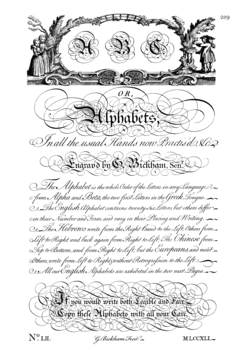 209
A B C,
OR,
Alphabets,
In all the usual Hands now Practis'd &c.
Engrav'd by G. Bickham, Senr.
The Alphabet is the whole Order of the Letters in any Language
from Alpha and Beta, the two first Letters in the Greek Tongue.
The English Alphabet contains twenty six Letters, but others differ
in their Number and Form, and vary in their Placing and Writing.
The Hebrews write from the Right Hand to the Left: Others from
Left to Right, and back again from Right to Left. The Chinese from
Top to Bottom, and from Right to Left; but the Europeans and most
Others, write from Left to Right, without Retrogression to the Left.
All our English Alphabets are exhibited in the two next Pages.
If you would write both Legible and Fair,
Copy these Alphabets with all your Care.
No. LII.
G. Bickham Fecit.
MDCCXLI.